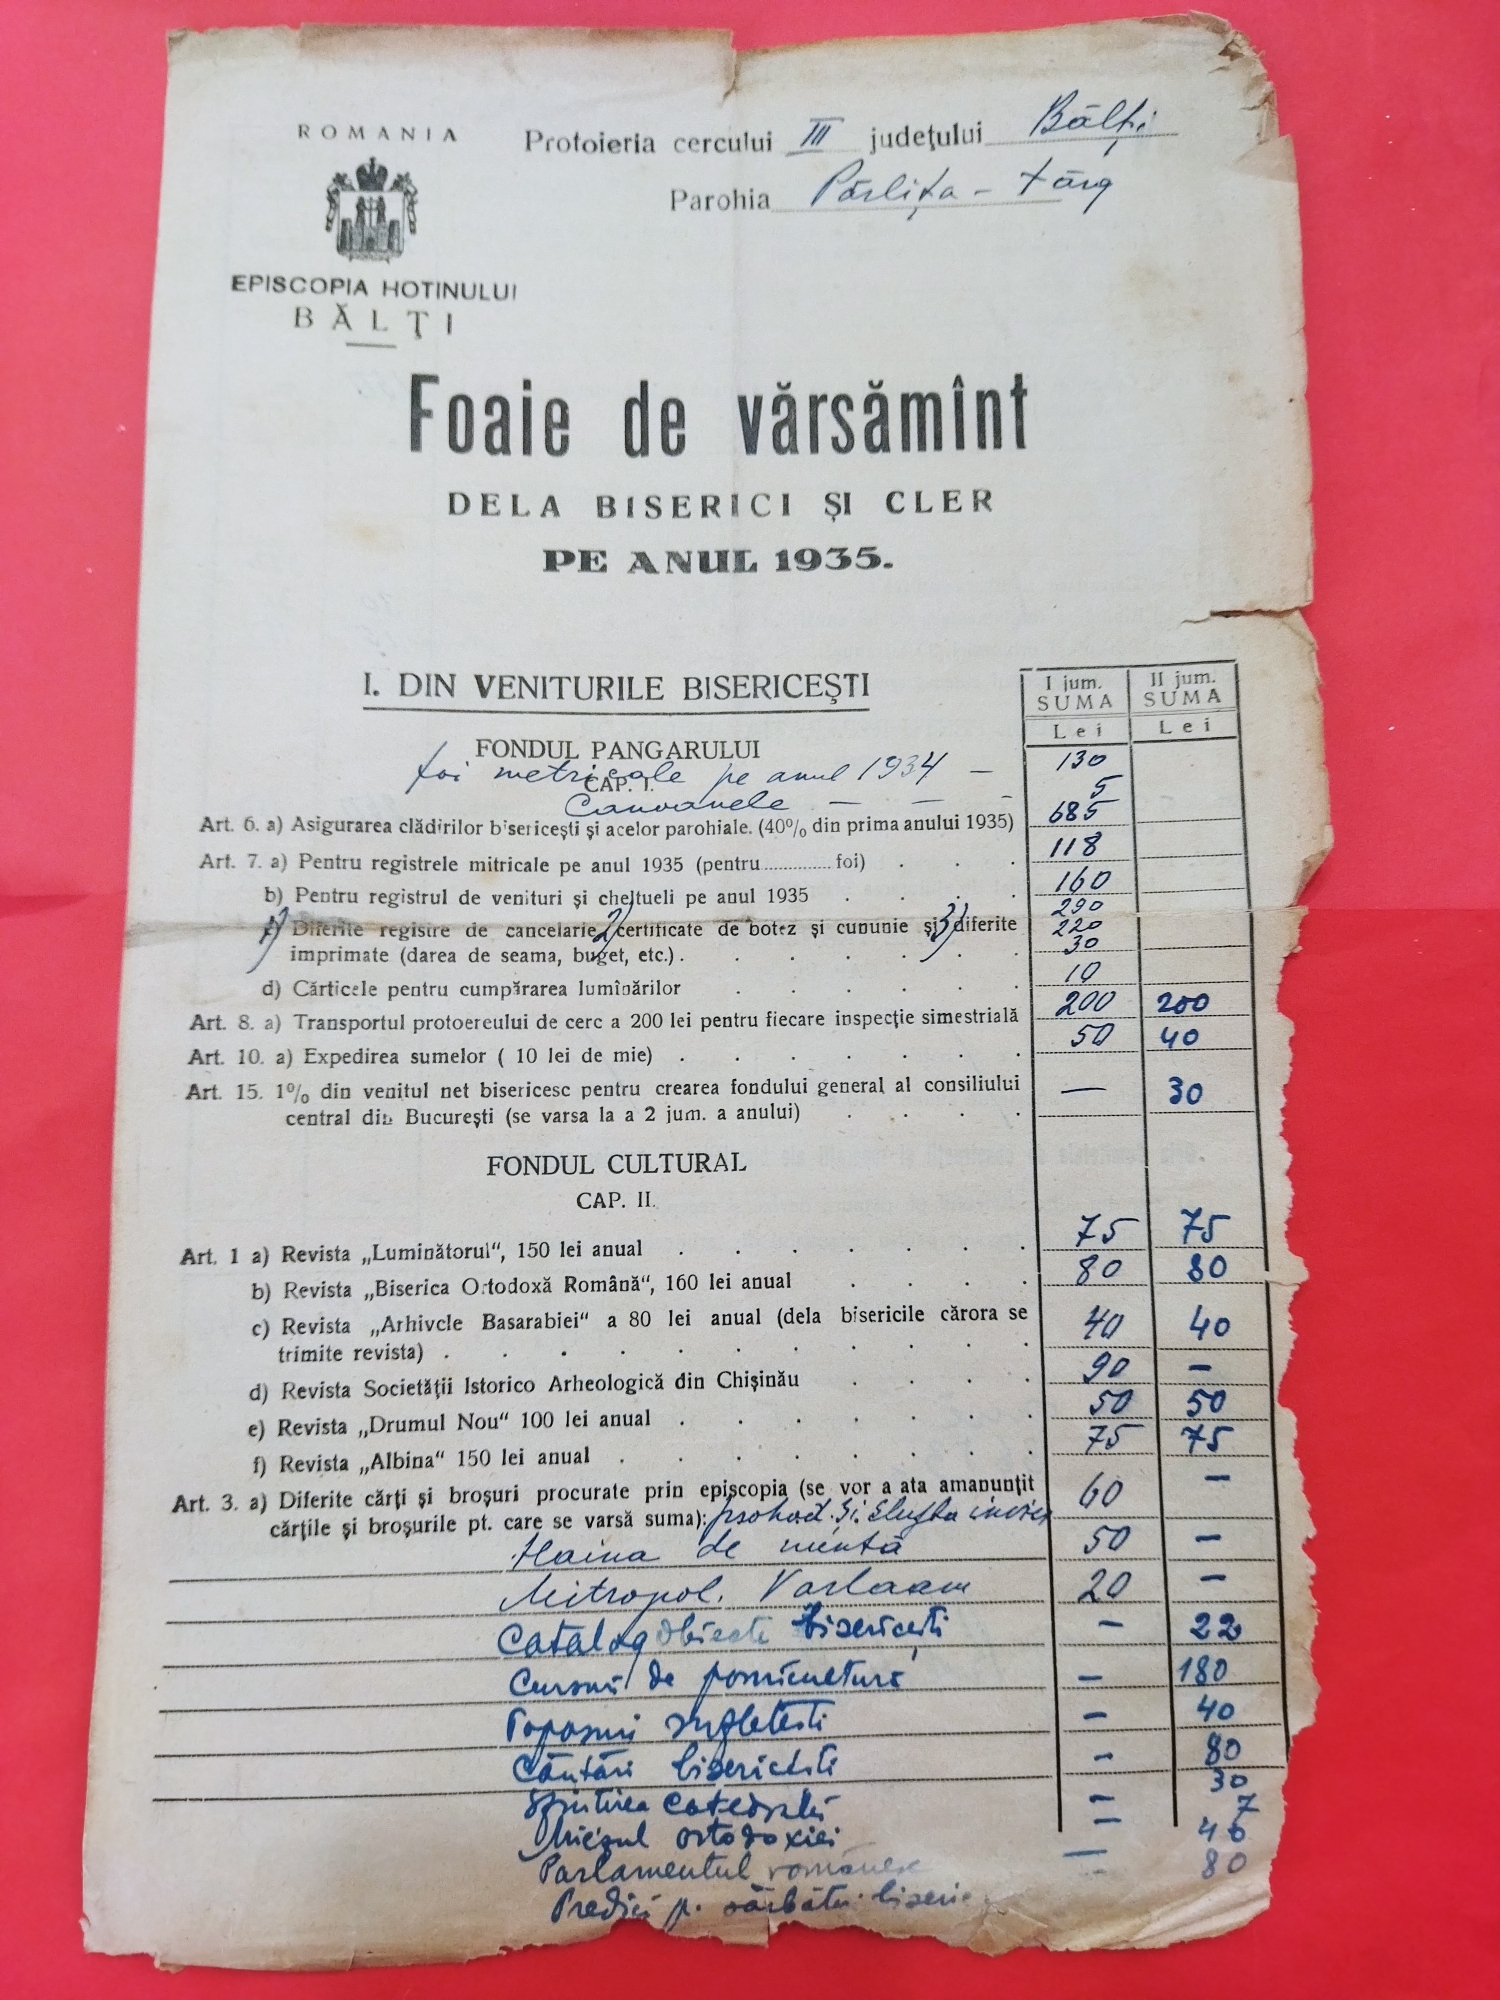 ROMANIA
EPISCOPIA HOTINULUI
BĂLŢI
Protoieria cercului III judeţului Bălţi
Parohia Pârliţa - târg
Foaie de vărsămînt
DELA BISERICI ŞI CLER
PE ANUL 1935.
I. DIN VENITURILE BISERICEŞTI
I jum. SUMA Lei
II jum. SUMA Lei
FONDUL PANGARULUI
foi metricale pe anul 1934 — 130
CAP. I.
— — — 5
Art. 6. a) Asigurarea clădirilor bisericeşti şi acelor parohiale. (40% din prima anului 1935) 685
Art. 7. a) Pentru registrele mitricale pe anul 1935 (pentru ............ foi) . . . 118
b) Pentru registrul de venituri şi cheltueli pe anul 1935 . . . . 160
1) Diferite registre de cancelarie 2) certificate de botez şi cununie şi 3) diferite 290 220
imprimate (darea de seama, buget, etc.) . . . . . . . 30
d) Cărticele pentru cumpărarea luminărilor . . . . . . 10
Art. 8. a) Transportul protoereului de cerc a 200 lei pentru fiecare inspecţie simestrială 200 200
Art. 10. a) Expedirea sumelor ( 10 lei de mie) . . . . . . . 50 40
Art. 15. 1% din venitul net bisericesc pentru crearea fondului general al consiliului — 30
central din Bucureşti (se varsa la a 2 jum. a anului) . . . .
FONDUL CULTURAL
CAP. II.
Art. 1 a) Revista „Luminătorul“, 150 lei anual . . . . . . . 75 75
b) Revista „Biserica Ortodoxă Română“, 160 lei anual . . . . 80 80
c) Revista „Arhivele Basarabiei“ a 80 lei anual (dela bisericile cărora se 40 40
trimite revista) . . . . . . . . . . .
d) Revista Societăţii Istorico Arheologică din Chişinău . . . . 90 —
e) Revista „Drumul Nou“ 100 lei anual . . . . . . . 50 50
f) Revista „Albina“ 150 lei anual . . . . . . . . 75 75
Art. 3. a) Diferite cărţi şi broşuri procurate prin episcopia (se vor a ata amanunţit 60 —
cărţile şi broşurile pt. care se varsă suma): prohod. şi slujba
Haina de nuntă 50 —
Mitropol. Varlaam 20 —
Catalog obiecte bisericeşti — 22
Cursul de pomicultură — 180
Popasuri sufleteşti — 40
Cântări bisericeşti — 80
Sfinţirea Catedralei — 30
Miezul ortodoxiei — 7
Parlamentul românesc — 40
Predici p. sărbători — 80